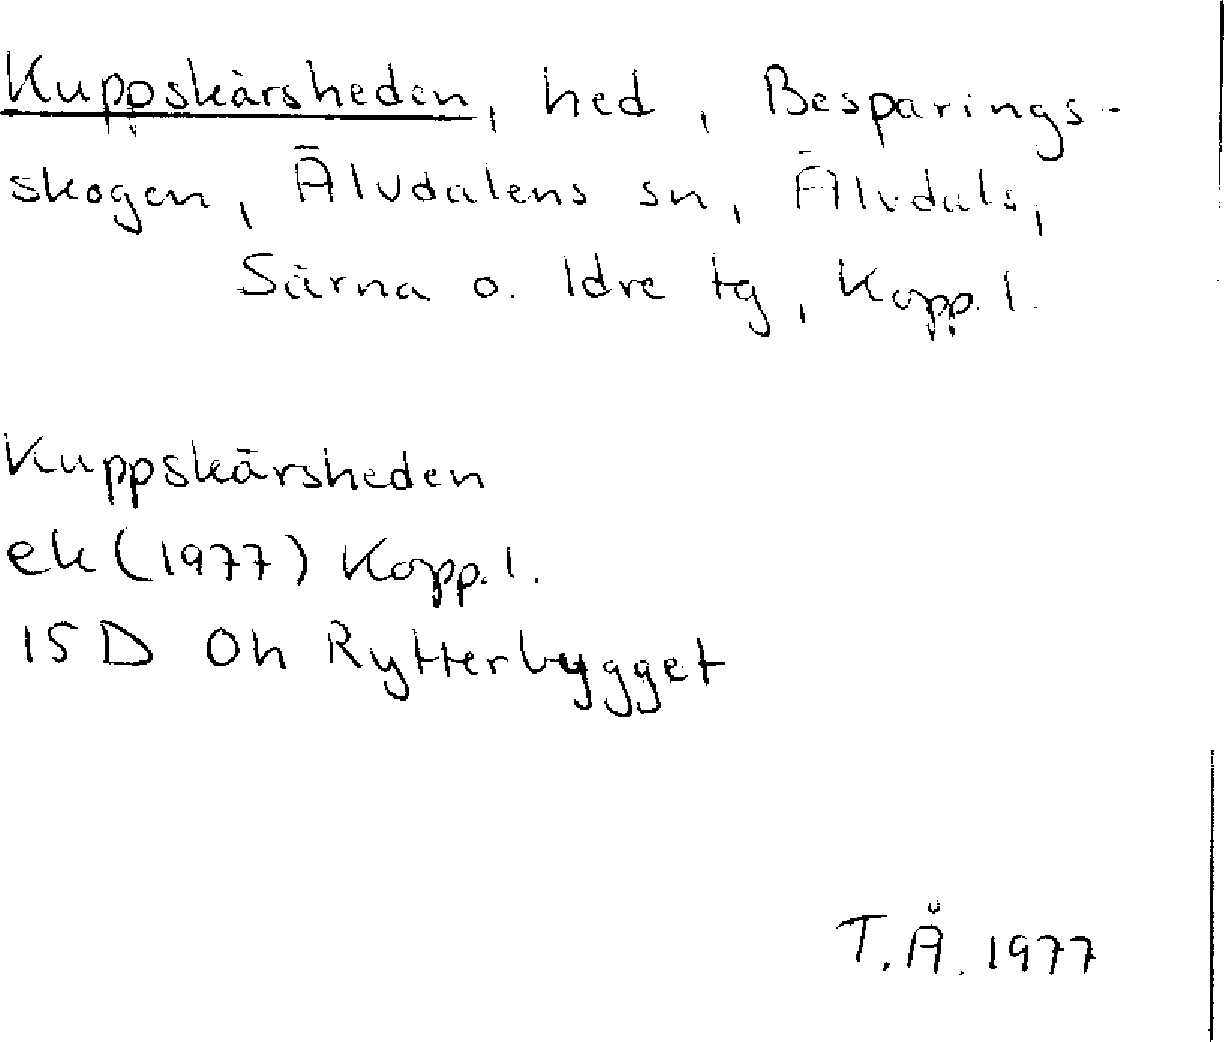 Kuppskärsheden, hed, Besparings-
skogen, Älvdalens sn, Älvdals,
Särna o. Idre tg, Kopp. l.
Kuppskärsheden
ek (1977) Kopp. l.
15D 0h Rytterbygget
T.Å. 1977